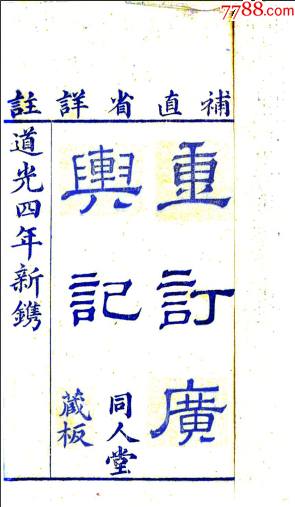 7788.com
補直省詳註
重訂廣
輿記
同人堂
藏板
道光四年新鐫